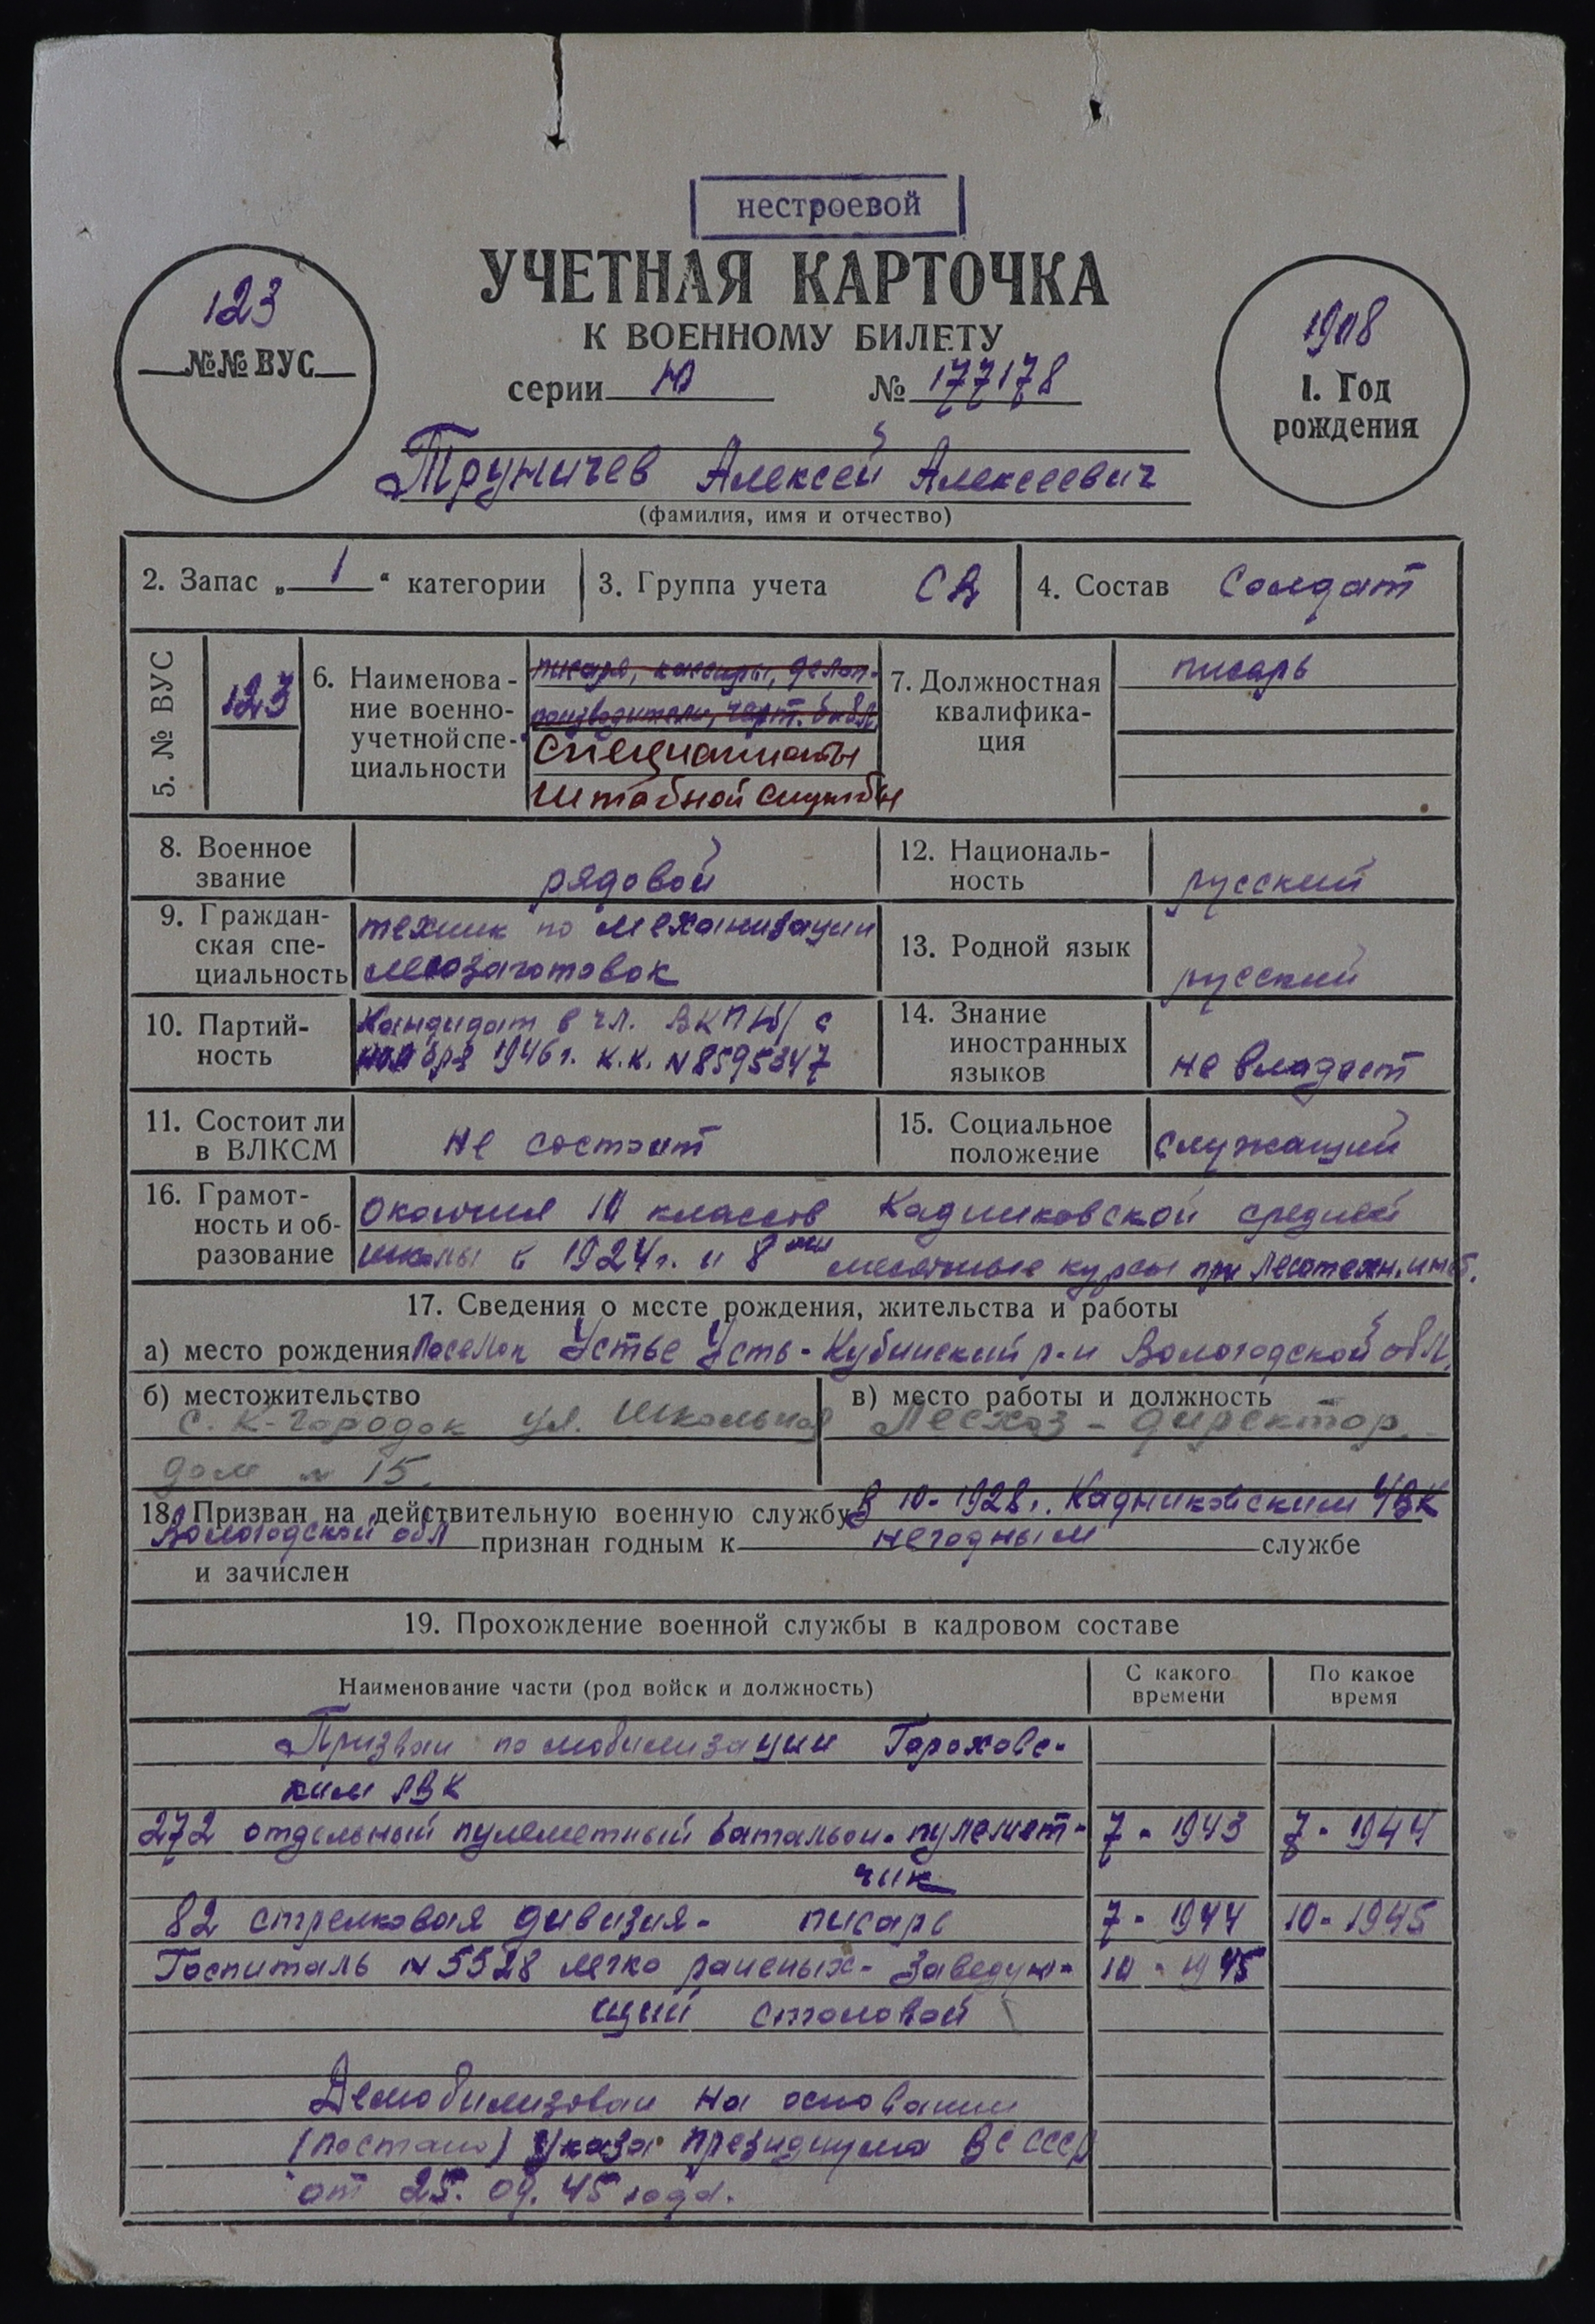 нестроевой
123
№№ ВУС
УЧЕТНАЯ КАРТОЧКА
К ВОЕННОМУ БИЛЕТУ
серии Ю № 177178
1908
1. Год
рождения
Труничев Алексей Алексеевич
(фамилия, имя и отчество)
2. Запас „ 1 “ категории
3. Группа учета СВ
4. Состав Солдат
5. № ВУС
123
6. Наименова-
ние военно-
учетной спе-
циальности
писаря, кассиры, делоп-
роизводители, черт. библ.
специалисты
штабной службы
7. Должностная
квалифика-
ция
писарь
8. Военное
звание
рядовой
12. Националь-
ность
русский
9. Граждан-
ская спе-
циальность
техник по механизации
лесозаготовок
13. Родной язык
русский
10. Партий-
ность
Кандидат в чл. ВКП(б) с
1946 г. к.к. N 8595347
14. Знание
иностранных
языков
не владеет
11. Состоит ли
в ВЛКСМ
не состоит
15. Социальное
положение
служащий
16. Грамот-
ность и об-
разование
окончил 10 классов Кадниковской средней
школы в 1924 г. и 8 ми месячные курсы при Лесотехн. инст.
17. Сведения о месте рождения, жительства и работы
а) место рождения Поселок Устье Усть-Кубинский р-н Вологодской обл.
б) местожительство
с. К-городок ул. Школьная
дом № 15.
в) место работы и должность
Лесхоз - директор.
18. Призван на действительную военную службу В 10-1928 г. Кадниковским УВК
Вологодской обл признан годным к негодным службе
и зачислен
19. Прохождение военной службы в кадровом составе
Наименование части (род войск и должность)
С какого
времени
По какое
время
Призван по мобилизации Гороховс-
ким РВК
272 отдельный пулеметный батальон - пулемет- 7 - 1943 7 - 1944
чик
82 стрелковая дивизия - писарь 7 - 1944 10 - 1945
Госпиталь N 5528 легко раненых - заведую- 10 - 1945
щий столовой
Демобилизован на основании
(постано) Указа президиума ВС СССР
от 25. 09. 45 года.